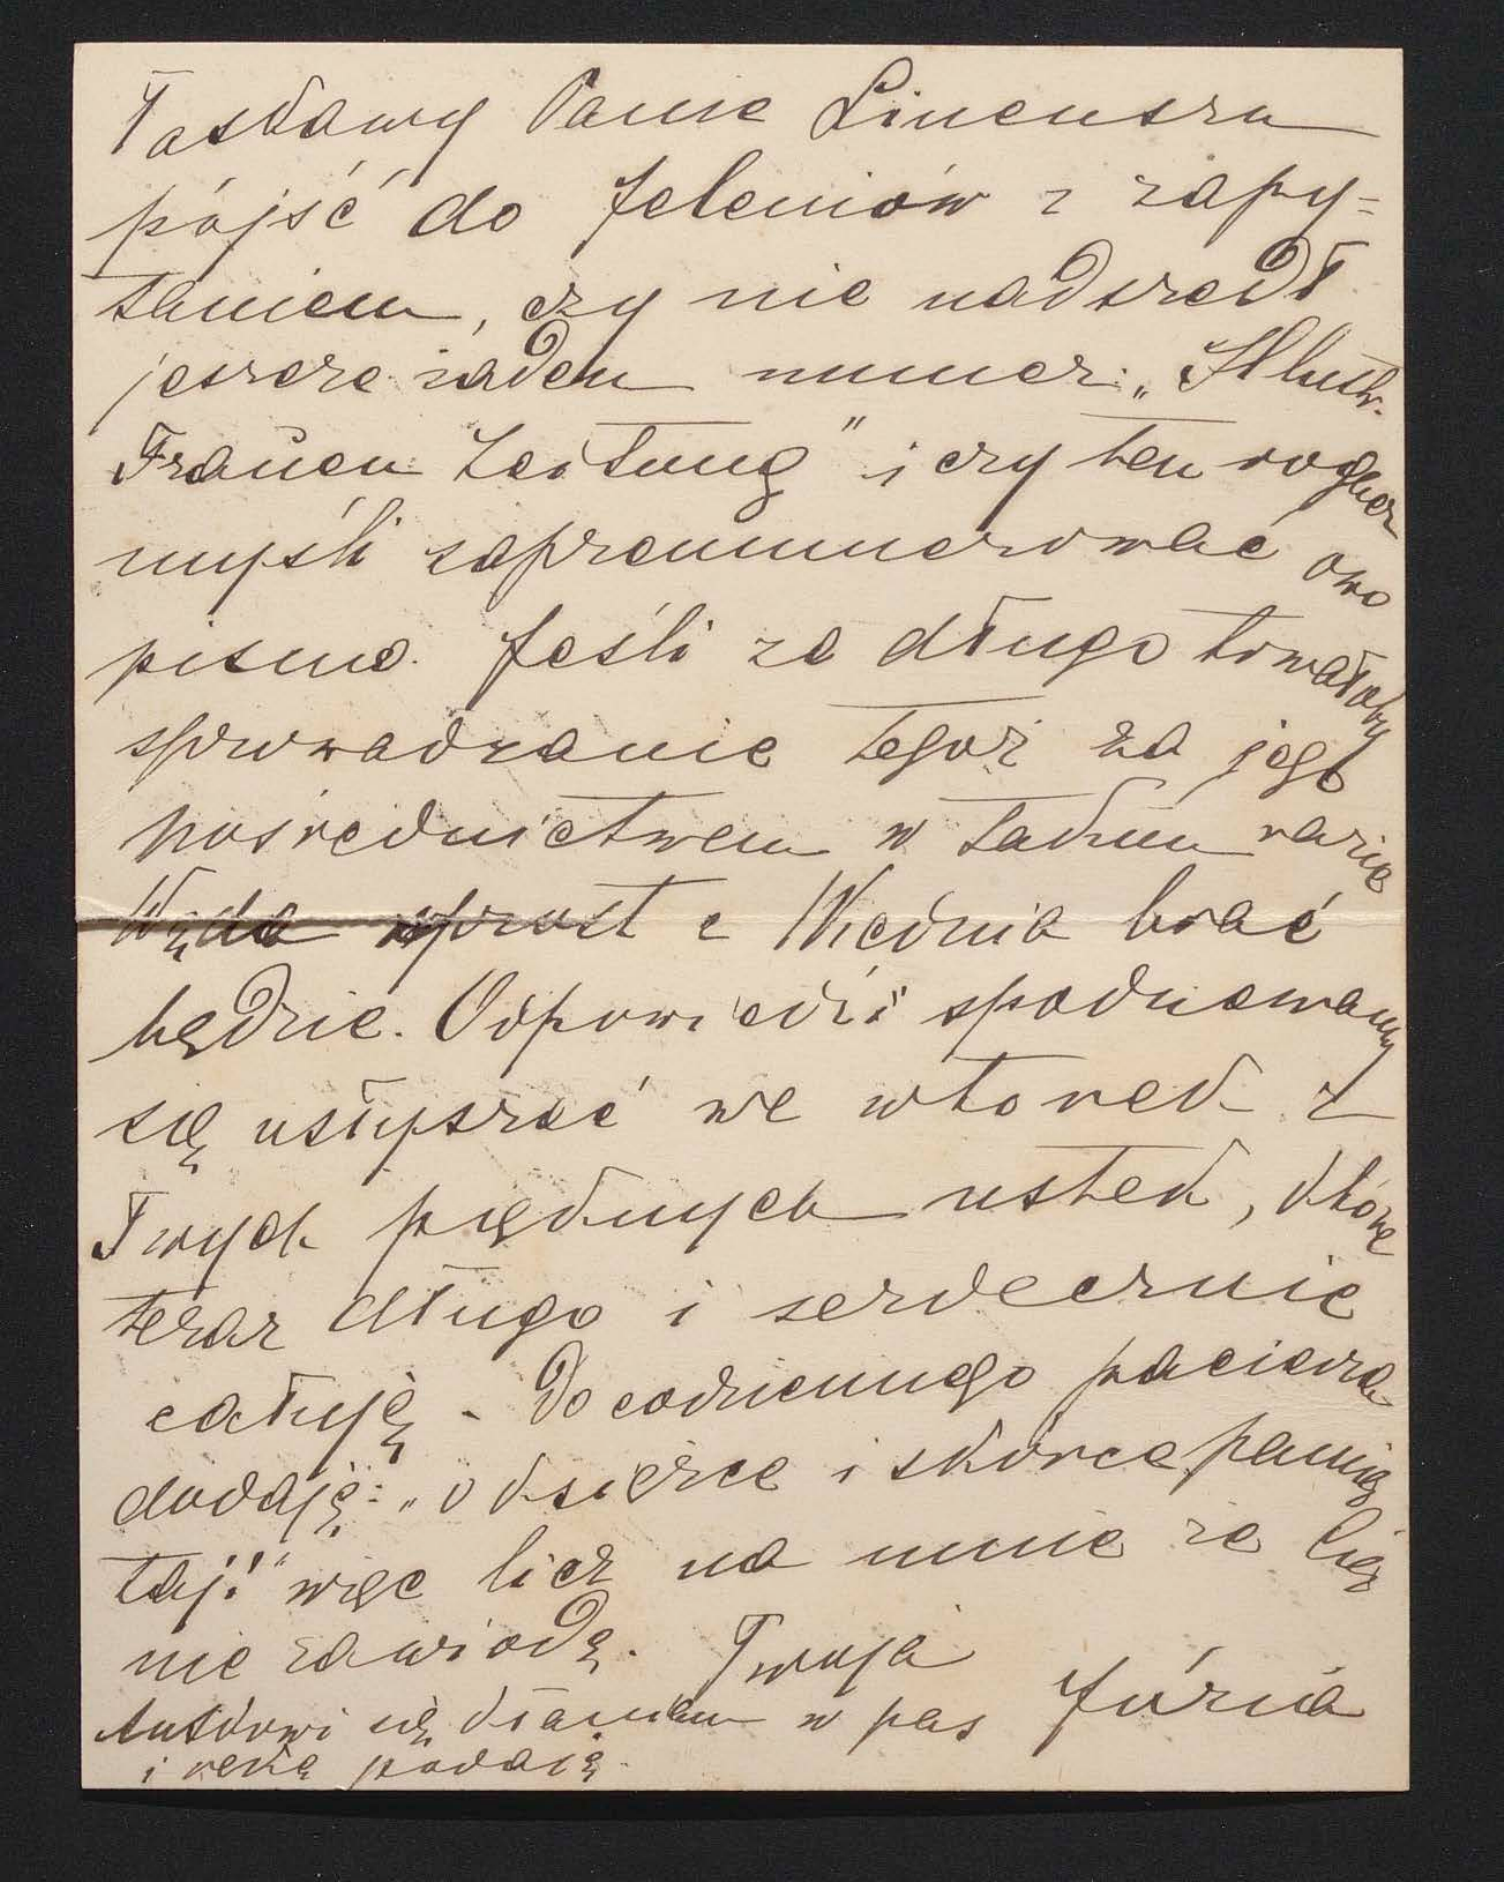 Łaskawy Panie
pójść do Jeleniów z zapy=
taniem, czy nie nadszedł
jeszcze żaden numer: „Illustr.
Frauen Zeitung" i czy ten
myśli zaprenumerować owo
pismo. Jeśli za długo trwałoby
sprowadzanie tegoż za jego
pośrednictwem w takim razie
wprost z Wiednia brać
będzie. Odpowiedzi spodziewamy
się usłyszeć we wtorek z
Twych pięknych ustek, które
teraz długo i serdecznie
całuję - Do codziennego pacierza
dodaję: „o Ksierżce i skórce pamię
taj!" więc licz na mnie że Cię
nie zawiodę. Twoja
Józia
Antkowi się kłaniam w pas
i rękę podaję.